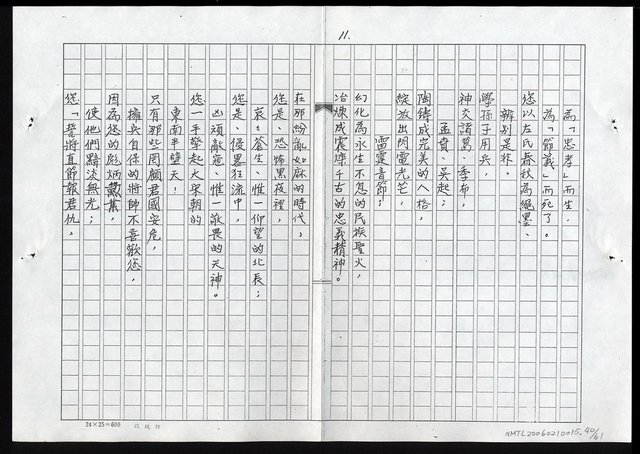 11.
為「忠孝」而生，
為「節義」而死了。
您以左氏春秋為繩墨、
辨別是非，
學孫子用兵，
神交諸葛、季布，
孟賁、吳起；
陶鑄成完美的人格，
綻放出閃電光芒，
雷霆音節；
幻化為永生不息的民族聖火，
冶煉成震爍千古的忠義精神。
在那紛亂如麻的時代，
您是、恐怖黑夜裡，
哀哀蒼生、惟一仰望的北辰；
您是、侵略狂流中，
凶頑敵寇、惟一敬畏的天神。
您一手擎起大宋朝的
東南半壁天！
只有那些罔顧君國安危，
擁兵自保的將帥不喜歡您，
因為您的彪炳勳業，
使他們黯淡無光；
您「誓將直節報君仇，
24×25=600
NMTL20060210015-40/61